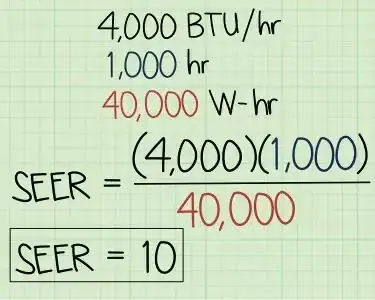 4,000 BTU/hr
1,000 hr
40,000 W-hr
SEER = (4,000)(1,000)
40,000
SEER = 10